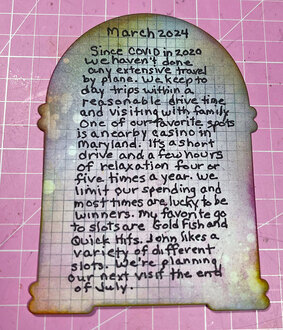 March 2024
Since Covid in 2020
we haven't done
any extensive travel
by plane. We keep to
day trips within a
reasonable drive time,
and visiting with family.
One of our favorite spots
is a nearby casino in
Maryland. It's a short
drive and a few hours
of relaxation four or
five times a year. We
limit our spending and
most times are lucky to be
winners. My favorite go
to slots are Gold Fish and
Quick Hits. John likes a
variety of different
slots. We're planning
our next visit the end
of July.